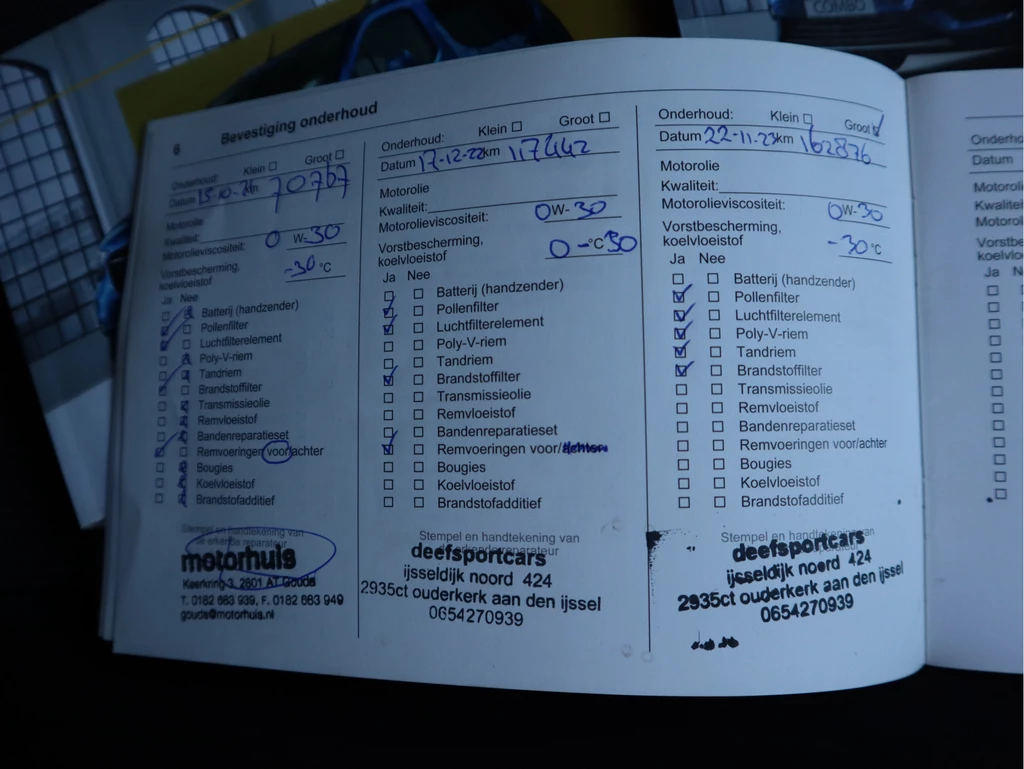 COMBO
6
Bevestiging onderhoud
Onderhoud: Klein Groot
Datum 15-10- km 70767
Motorolie
Kwaliteit:
Motorolieviscositeit: 0 W-30
Vorstbescherming,
koelvloeistof -30 °C
Ja Nee
Batterij (handzender)
Pollenfilter
Luchtfilterelement
Poly-V-riem
Tandriem
Brandstoffilter
Transmissieolie
Remvloeistof
Bandenreparatieset
Remvoeringen voor/achter
Bougies
Koelvloeistof
Brandstofadditief
Stempel en handtekening van
de erkende reparateur
motorhuis
Kaerkring 3, 2801 AT Gouda
T. 0182 683 939, F. 0182 683 949
gouda@motorhuis.nl
Onderhoud: Klein Groot
Datum 17-12-22 km 117442
Motorolie
Kwaliteit:
Motorolieviscositeit: 0W-30
Vorstbescherming,
koelvloeistof 0 -°C 30
Ja Nee
Batterij (handzender)
Pollenfilter
Luchtfilterelement
Poly-V-riem
Tandriem
Brandstoffilter
Transmissieolie
Remvloeistof
Bandenreparatieset
Remvoeringen voor/
Bougies
Koelvloeistof
Brandstofadditief
Stempel en handtekening van
de erkende reparateur
deefsportcars
ijsseldijk noord 424
2935ct ouderkerk aan den ijssel
0654270939
Onderhoud: Klein Groot
Datum 22-11-23 km 162876
Motorolie
Kwaliteit:
Motorolieviscositeit: 0W-30
Vorstbescherming,
koelvloeistof -30 °C
Ja Nee
Batterij (handzender)
Pollenfilter
Luchtfilterelement
Poly-V-riem
Tandriem
Brandstoffilter
Transmissieolie
Remvloeistof
Bandenreparatieset
Remvoeringen voor/achter
Bougies
Koelvloeistof
Brandstofadditief
Stempel en handtekening van
deefsportcars
ijsseldijk noord 424
2935ct ouderkerk aan den ijssel
0654270939
Datum
Ja N